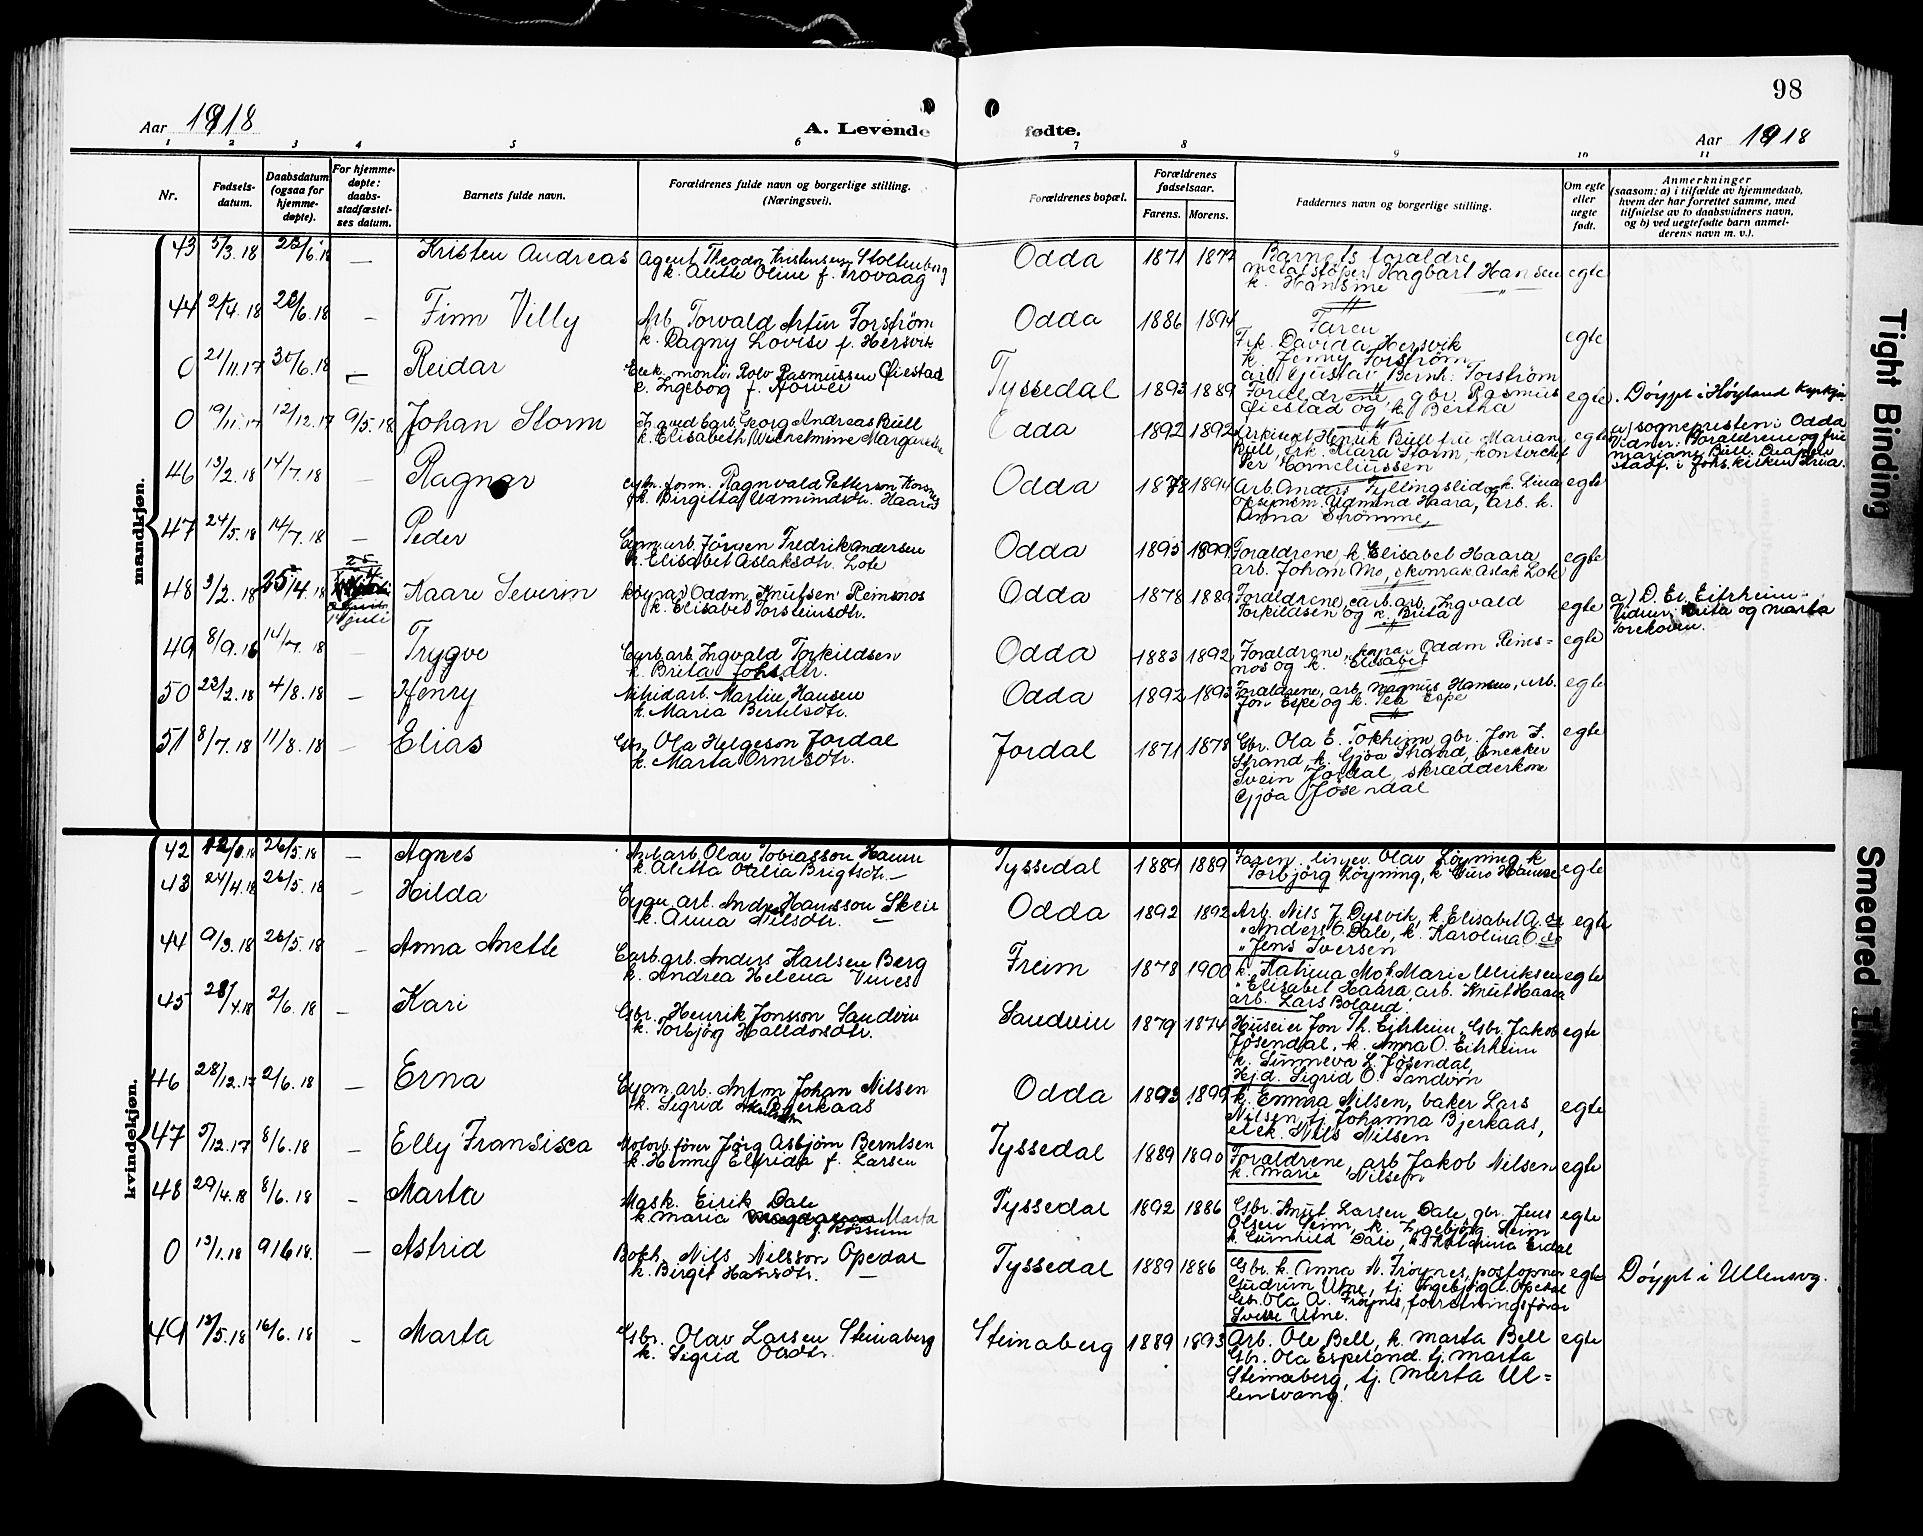 98
Aar 1918
A. Levende fødte.
Aar 1918
1 2 3 4 5 6 7 8 9 10 11
Nr.
Fødsels-
datum.
Daabsdatum
(ogsaa for
hjemme-
døpte).
For hjemme-
døpte:
daabs-
stadfæstel-
ses datum.
Barnets fulde navn.
Forældrenes fulde navn og borgerlige stilling.
(Næringsvei).
Forældrenes bopæl.
Forældrenes
fødselsaar.
Farens. Morens.
Faddernes navn og borgerlige stilling.
Om egte
eller
uegte
født.
Anmerkninger
(saasom: a) i tilfælde av hjemmedaab,
hvem der har forrettet samme, med
tilføielse av to daabsvidners navn,
og b) ved uegtefødte barn anmel-
derens navn m. v.).
mandkjøn.
43 5/3.18 — Kristen Andreas
Agent Theodor Kristensen Stoltenberg
k. Alette Oline f. Trovaag
Odda 1871
Barnets foraldre
Hagbart Hansen
k. Hansine
egte
44 23/6.18 — Finn Villy
Arb. Torvald Artur Forstrøm
k. Ragny Lovise f. Hersvik
Odda 1886 1894
Faren
Frk. Davida Hersvik
k. Jenny Forstrøm
arb. Gustav Bernh. Forstrøm
egte
0 21/11.17 30/6.18 — Reidar
Elek. montør Rolv Rasmussen Øiestad
k. Ingebog f.
Tyssedal 1893 1889
Foraldrene, gbr. Rasmus
Øiestad og k. Bertha
egte
Døypt i Høyland
0 19/11.17 12/12.17 9/5.18 Johan Storm
Georg Andreas Bull
k. Elisabeth Wilhelmine Margarethe
Odda 1892 1892
Arkitekt Henrik Bull frue Mariane
Bull, frk. Klara Storm, kontorchef
Per Corneliussen
egte
a) sognepresten i Odda
Vidner: Foraldrene og frue
mariane Bull.
stadf. i Johs. kirken
46 13/2.18 14/7.18 — Ragnar
form. Ragnvald Petterson
k. Birgitta Udmundsdtr. Haara
Odda 1878 1894
Arb. Anders Fyllingslid og k. Lina
Udmund Haara, arb. k.
Anna Strømme
egte
47 24/5.18 14/7.18 — Peder
Cyan. arb. Jørgen Fredrik Andersen
k. Elisabet Aslaksdtr. Lote
Odda 1895 1899
Foraldrene, k. Elisabet Haara
arb. Johan Mo, Aslak Lote
egte
48 3/2.18 25/4.18
14 juli
Kaare Severin
Oddm. Knutsen Reinsnos
k. Elisabet Torsteinsdtr.
Odda 1878 1889
Foraldrene, carb. arb. Ingvald
Torkildsen og k. Brita
egte
a) D. Er. Eitrheim
Vidner: Brita og Marta
49 8/9.16 14/7.18 — Trygve
Carb. arb. Ingvald Torkildsen
k. Brita Johs.dtr.
Odda 1883 1892
Foraldrene, Oddm Reins-
nos og k. Elisabet
egte
50 23/2.18 4/8.18 — Henry
Nitrid arb. Martin Hansen
k. Maria Bertelsdtr.
Odda 1892 1893
Foraldrene, arb. Magnus Hansen, arb.
Jon Espe og k. Espe
egte
51 8/7.18 11/8.18 — Elias
Gbr. Ola Helgeson Jordal
k. Marta Ormsdtr.
Jordal 1871 1878
Gbr. Ola E. Tokheim, gbr. Jon J.
Strand k. Gjøa Strand, snekker
Svein Jordal, skrædderkone
Gjøa Jøsendal
egte
kvindekjøn.
42 26/5.18 — Agnes
arb. Olav Tobiasson Hamre
k. Aletta Otelia Brigtsdtr.
Tyssedal 1889 1889
Faren, Olav Løyning, k
Torbjørg Løyning, k. Guro Hamre
egte
43 24/4.18 26/5.18 — Hilda
Cyan arb. Andr. Hansson Skeie
k. Anna Nilsdtr.
Odda 1892 1892
Arb. Nils J. Dysvik, k. Elisabet A. do
" Anders O. Dale, k. Karolina O. do
" Jens Iversen
egte
44 9/3.18 26/5.18 — Anna Anette
Carb. arb. Anders Karlsen Berg
k. Andrea Helena
Freim 1878 1900
k. Katrina Mo, k. Marie Ulriksen
" Elisabet Haara, arb. Knut Haara
arb. Lars Boland
egte
45 28/4.18 2/6.18 — Kari
Gbr. Henrik Jonsson Sandvin
k. Torbjøg Halldorsdtr.
Sandvin 1879 1874
Huseier Jon Th. Eitrheim, Gbr. Jakob
Jøsendal, k. Anna O. Eitrheim
k. Sunneva L. Jøsendal,
Hj.d. Sigrid O. Sandvin
egte
46 28/12.17 2/6.18 — Erna
Cyan. arb. Anton Johan Nilsen
k. Sigrid Bjerkaas
Odda 1893 1899
k. Emma Nilsen, baker Lars
Nilsen, tj. Johanna Bjerkaas,
elek. Nils Nilsen
egte
47 5/12.17 8/6.18 — Elly Fransisca
Motorb. fører Jørg Asbjørn Berntsen
k. Henny Elfrida f. Larsen
Tyssedal 1889 1890
Foraldrene, arb Jakob Nilsen
k. Marie Nilsen
egte
48 29/4.18 8/6.18 — Marta
Mask. Eirik Dale
k. Maria Marta
Tyssedal 1892 1886
Gbr. Knut Larsen Dale, gbr. Jens
Olsen Seim, k. Ingebjørg Seim
k. Gunhild Dale, k. Katarina Erdal
egte
0 13/1.18 9/6 18. — Astrid
Bokh. Nils Nilsson Opedal
k. Birgit Hansdtr.
Tyssedal 1889 1886
Gbr. k. Anna N. Frøynes, postopner
Gudrun Utne, tj. Ingebjørg A. Opedal
Gbr. Ola A. Frøynes, forretningsfører
Utne.
egte
Døypt i Ullensvg.
49 13/5.18 16/6.18 — Marta
Gbr. Olav Larsen Steinaberg
k. Sigrid Olsdtr.
Steinaberg 1889 1893
Arb. Ole Bell, k. Marta Bell
Gbr. Ola Espeland, tj. Marta
Steinaberg, tj. Marta Ul=
lensvang.
egte
Tight Binding
Smeared Ink